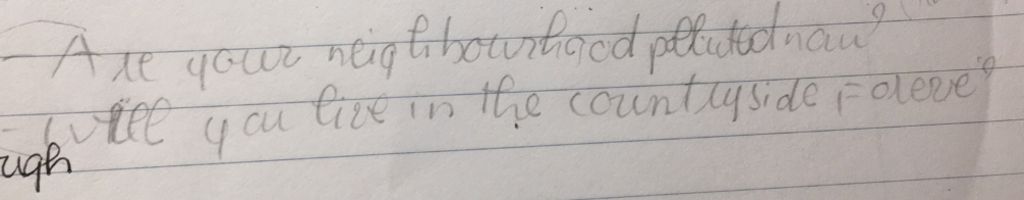 - Are your neighbourhood polluted now?
- Will you live in the countryside Foreve?
ugh